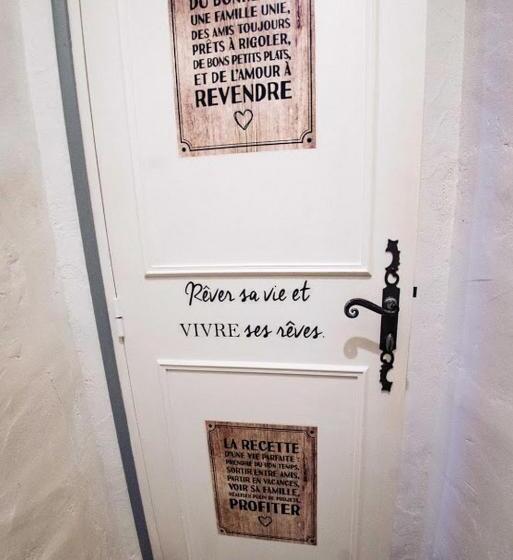 DU BONHEUR
UNE FAMILLE UNIE,
DES AMIS TOUJOURS
PRÊTS À RIGOLER,
DE BONS PETITS PLATS,
ET DE L'AMOUR À
REVENDRE
Rêver sa vie et
VIVRE ses rêves.
LA RECETTE
D'UNE VIE PARFAITE :
PRENDRE DU BON TEMPS,
SORTIR ENTRE AMIS,
PARTIR EN VACANCES,
VOIR SA FAMILLE,
RÉALISER PLEIN DE PROJETS,
PROFITER